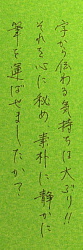 字から伝わる気持ちは大ぶり!!
それを心に秘め 素朴に 静かに
筆を運ばせましたか?